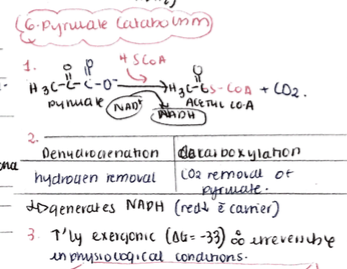 6. Pyruvate Catabolism
1. HSCoA
O O O
H3C-C-C-O- → H3C-C-S-CoA + CO2.
pyruvate NAD+ NADH ACETYL COA
2.
Dehydrogenation Decarboxylation
hydrogen removal CO2 removal of
pyruvate.
↳ generates NADH (red↓ e carrier)
3. ↑'ly exergonic (ΔG = -33) ∴ irreversible
in physiological conditions.